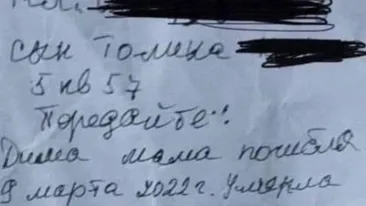 сын Толика
5 кв 57
Передайте:
Дима мама погибла
9 марта 2022 г. Умерла